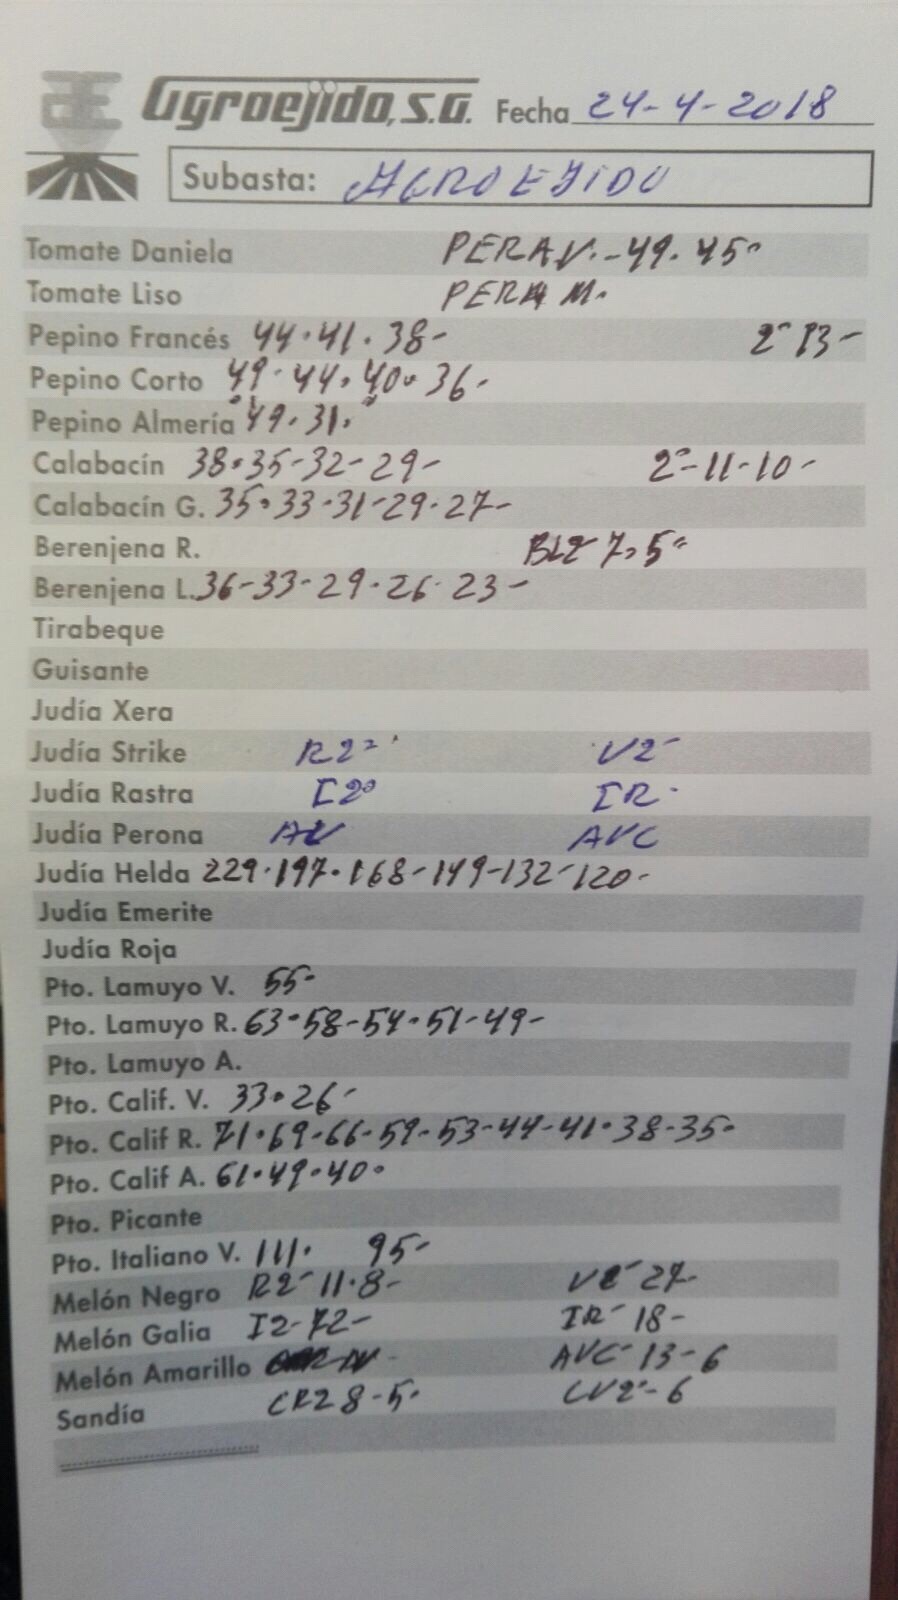 Agroejido, S.A. Fecha 24-4-2018
Subasta: AGROEJIDO
Tomate Daniela PERA V. - 49. 45-
Tomate Liso PERA M.
Pepino Francés 44.41.38- 2ª 13-
Pepino Corto 49.44.40.36-
Pepino Almería 49.31.
Calabacín 38.35-32-29- 2ª-11-10-
Calabacín G. 35.33.31-29.27-
Berenjena R. BL2ª 7,5-
Berenjena L. 36-33-29.26.23-
Tirabeque
Guisante
Judía Xera
Judía Strike R2ª V2ª
Judía Rastra I2ª IR.
Judía Perona AV AVC
Judía Helda 229.197.168-149-132-120-
Judía Emerite
Judía Roja
Pto. Lamuyo V. 55-
Pto. Lamuyo R. 63.58-54.51-49-
Pto. Lamuyo A.
Pto. Calif. V. 33.26-
Pto. Calif R. 71.69-66-59-53-44-41.38-35-
Pto. Calif A. 61.49.40.
Pto. Picante
Pto. Italiano V. 111. 95-
Melón Negro R2ª 11.8- V2ª 27-
Melón Galia I2-72- IR- 18-
Melón Amarillo AVC- 13-6
Sandía CR2 8-5. CV2ª-6